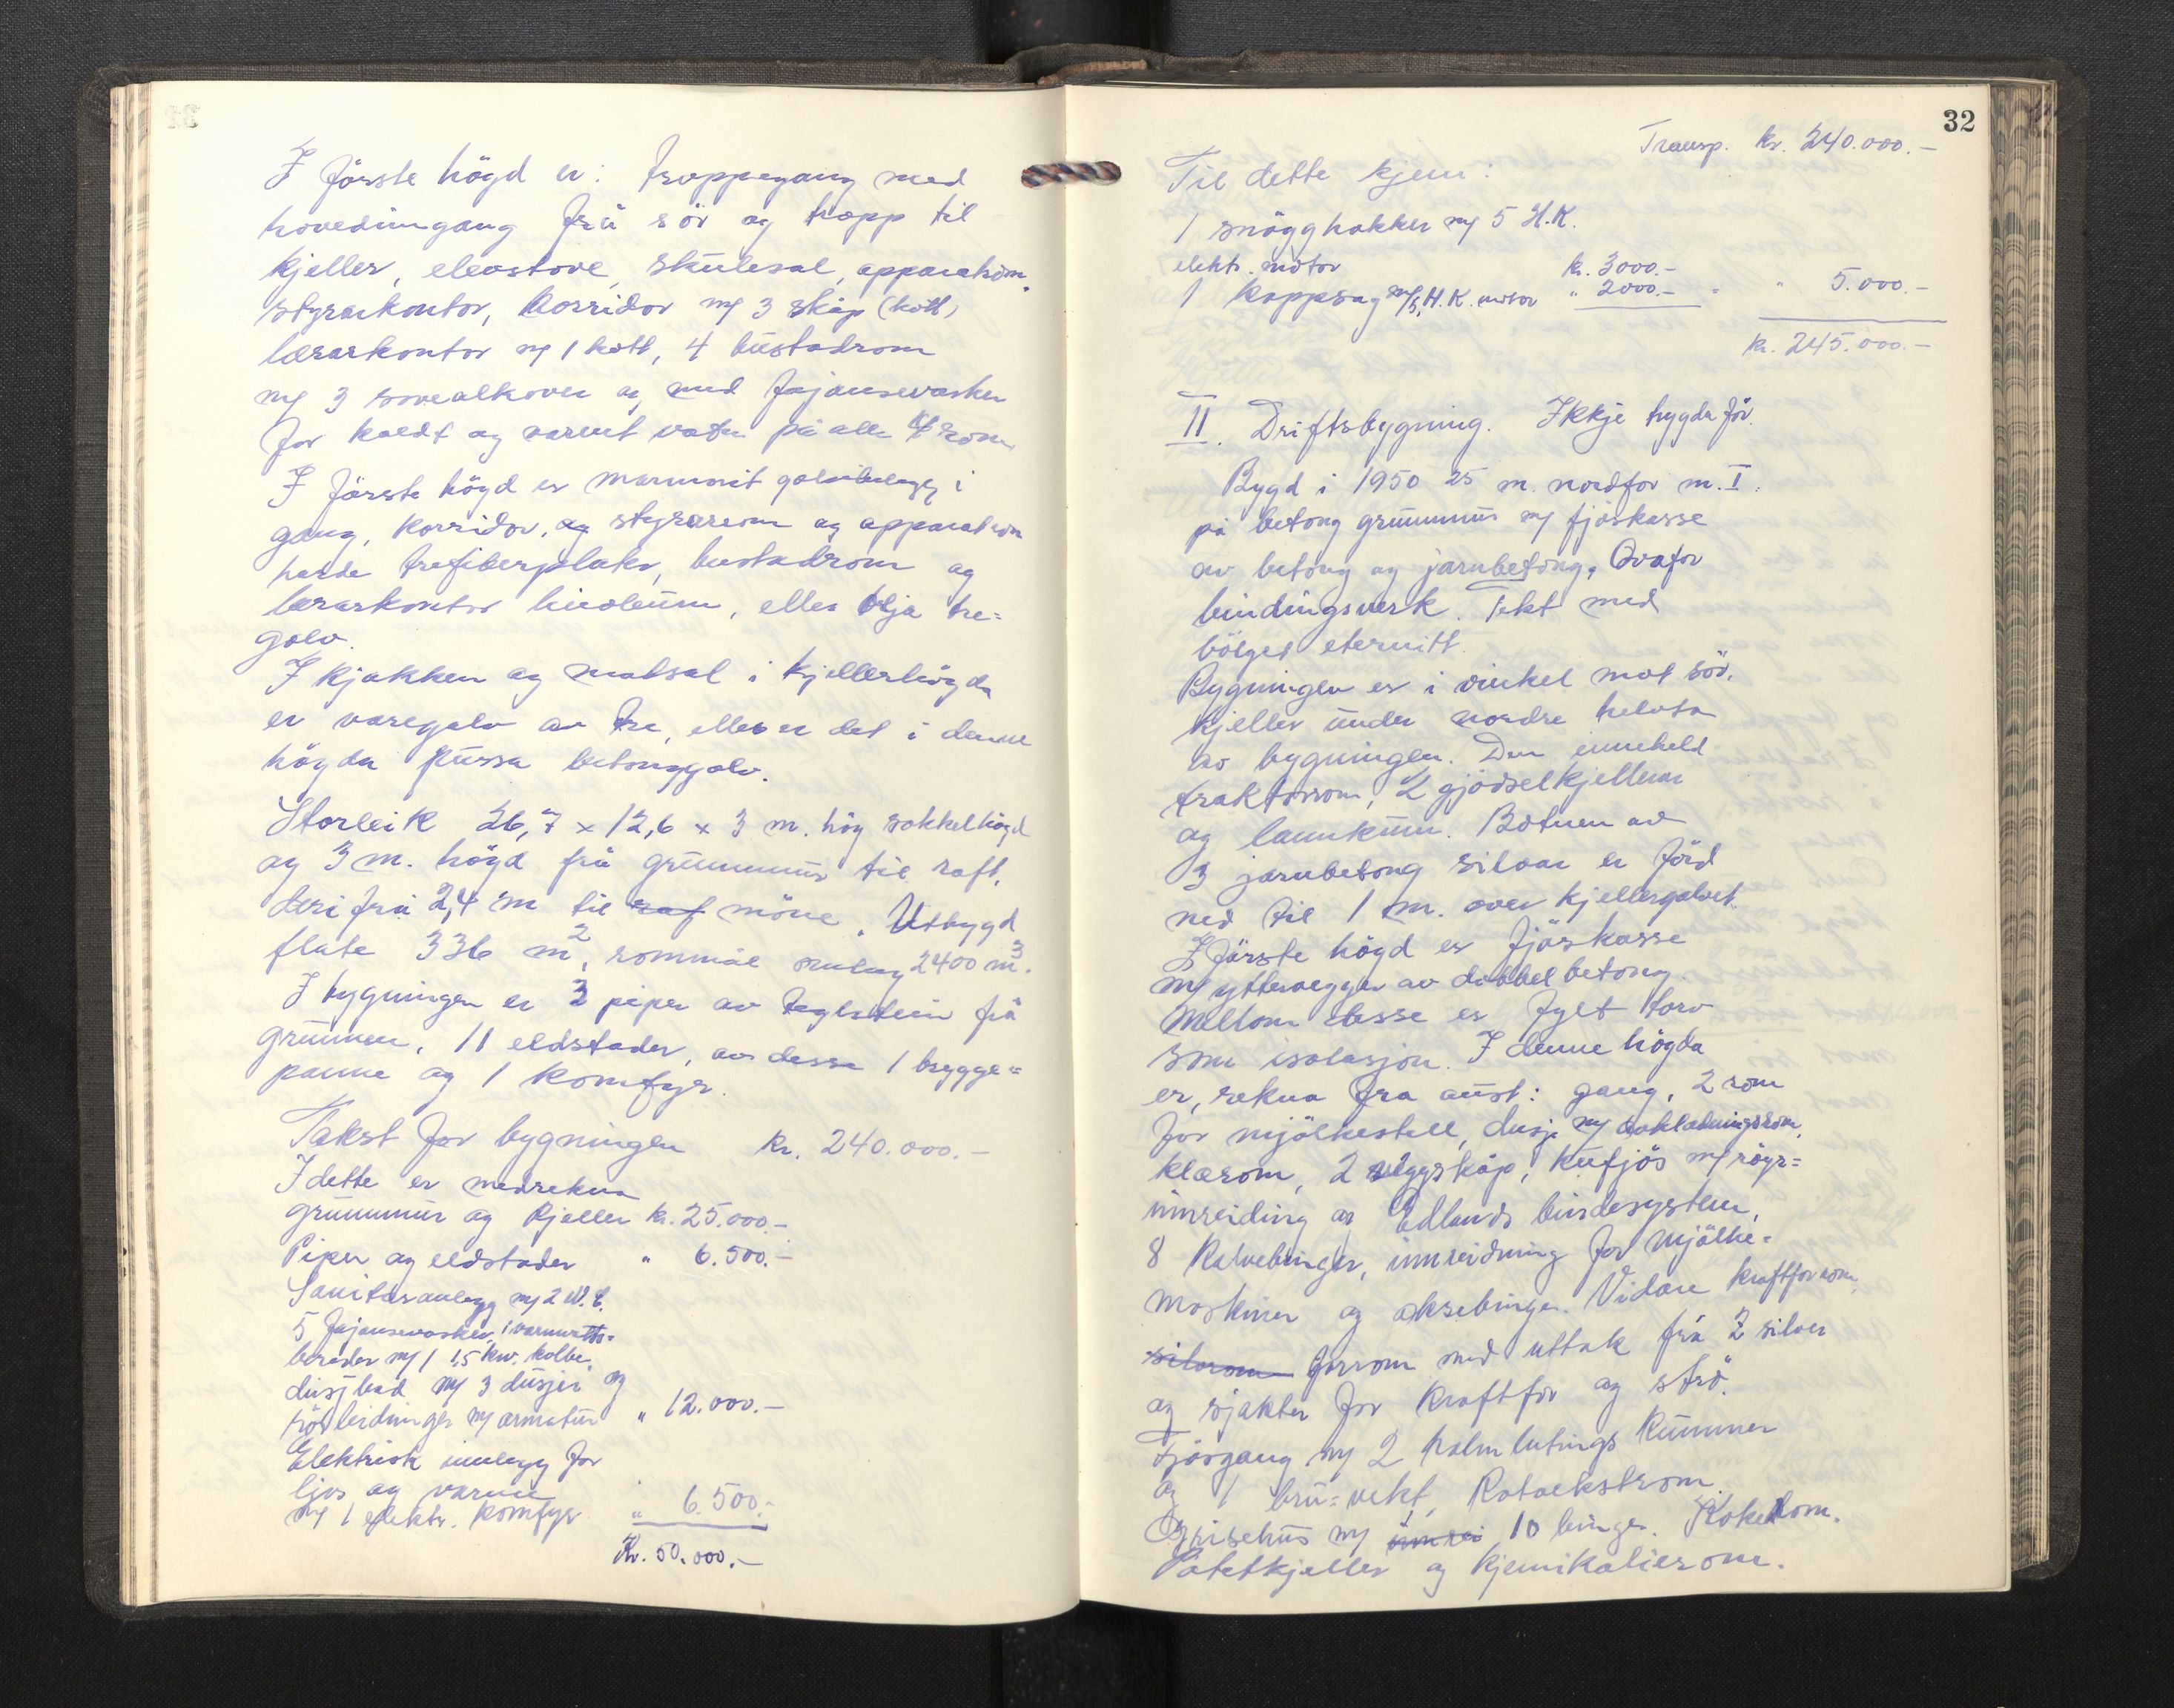 I förste högd er: troppegang med
hovedinngang frå sör og tropp til
kjeller, elevstove, skulesal, apparatrom,
styrarkontor, korridor m/ 3 skåp (kott)
lærarkontor m/ 1 kott, 4 bustadrom
m/ 3 sovealkover og med fajansevasker
for kaldt og varmt vatn på alle 4 rom
I förste högd er marmorit golvbelegg i
gang, korridor, og styrarrom og apparatrom
harde trefiberplater, bustadrom og
lærarkontor linoleum, elles olja tre-
golv.
I kjøkken og matsal i kjellerhögda
er varegolv av tre, elles er det i denne
högda pussa betonggolv.
Storleik 26,7 x 12,6 x 3 m. hög sokkelhögd
og 3 m. högd frå grunnmur til raft,
derifrå 2,4 m til raf möne. Utbygd
flate 336 m², rommål omlag 2400 m³.
I bygningen er 2 piper av teglstein frå
grunnen, 11 eldstader, av dessa 1 brygge=
panne og 1 komfyr.
Takst for bygningen kr. 240.000.-
I dette er medrekna
grunnmur og kjeller kr. 25.000.-
Piper og eldstader " 6.500.-
Sanitæranlegg m/ 2 W.C.
5 fajansevasker, 1 varmvatts-
bereder m/ 1 1,5 kw. kolbe,
dusjbad m/ 3 dusjer og
rörleidninger m/ armatur " 12.000.-
Elektrisk innlegg for
ljos og varme
m/ 1 elektr. komfyr " 6.500.-
Kr. 50.000.-
32
Transp. kr. 240.000.-
Til dette kjem:
1 snögghakker m/ 5 H.K.
elektr. motor kr. 3000.-
1 kappsag m/ 5 H.K. motor " 2000.- " " 5.000.-
kr. 245.000.-
II. Driftsbygning. Ikkje trygda för.
Bygd i 1950 25 m. nordfor m. I.
på betong grunnmur m/ fjøskasse
av betong og jarnbetong, Ovafor
bindingsverk. Tekt med
bölget eternitt.
Bygningen er i vinkel mot sör.
Kjeller under nordre helvta
av bygningen. Den inneheld
traktorrom, 2 gjödselkjellerar
og lannkum. Botnen av
3 jarnbetong siloar er förd
ned til 1 m. over kjellergolvet.
I förste högd er fjöskasse
m/ yttervegger av dobbel betong.
Mellom desse er fylt torv
som isolasjon. I denne högda
er, rekna fra aust: gang, 2 rom
for mjölkestell, dusj m/ avkledningsrom,
klærom, 2 veggskåp, kufjös m/ röyr=
innreiding og Edlands bindesystem,
8 kalvebinger, innreidning for mjölke-
maskiner og oksebinge. Vidare kraftforrom,
silorom forrom med uttak frå 2 siloer
og sjakter for kraftfôr og strö.
Fjösgang m/ 2 halmlutings kummer
og 1 bru-vekt, Rotvekstrom.
Grisehus m/ innrei 10 binger. Kokerom.
Potetkjeller og Kjemikalierom.